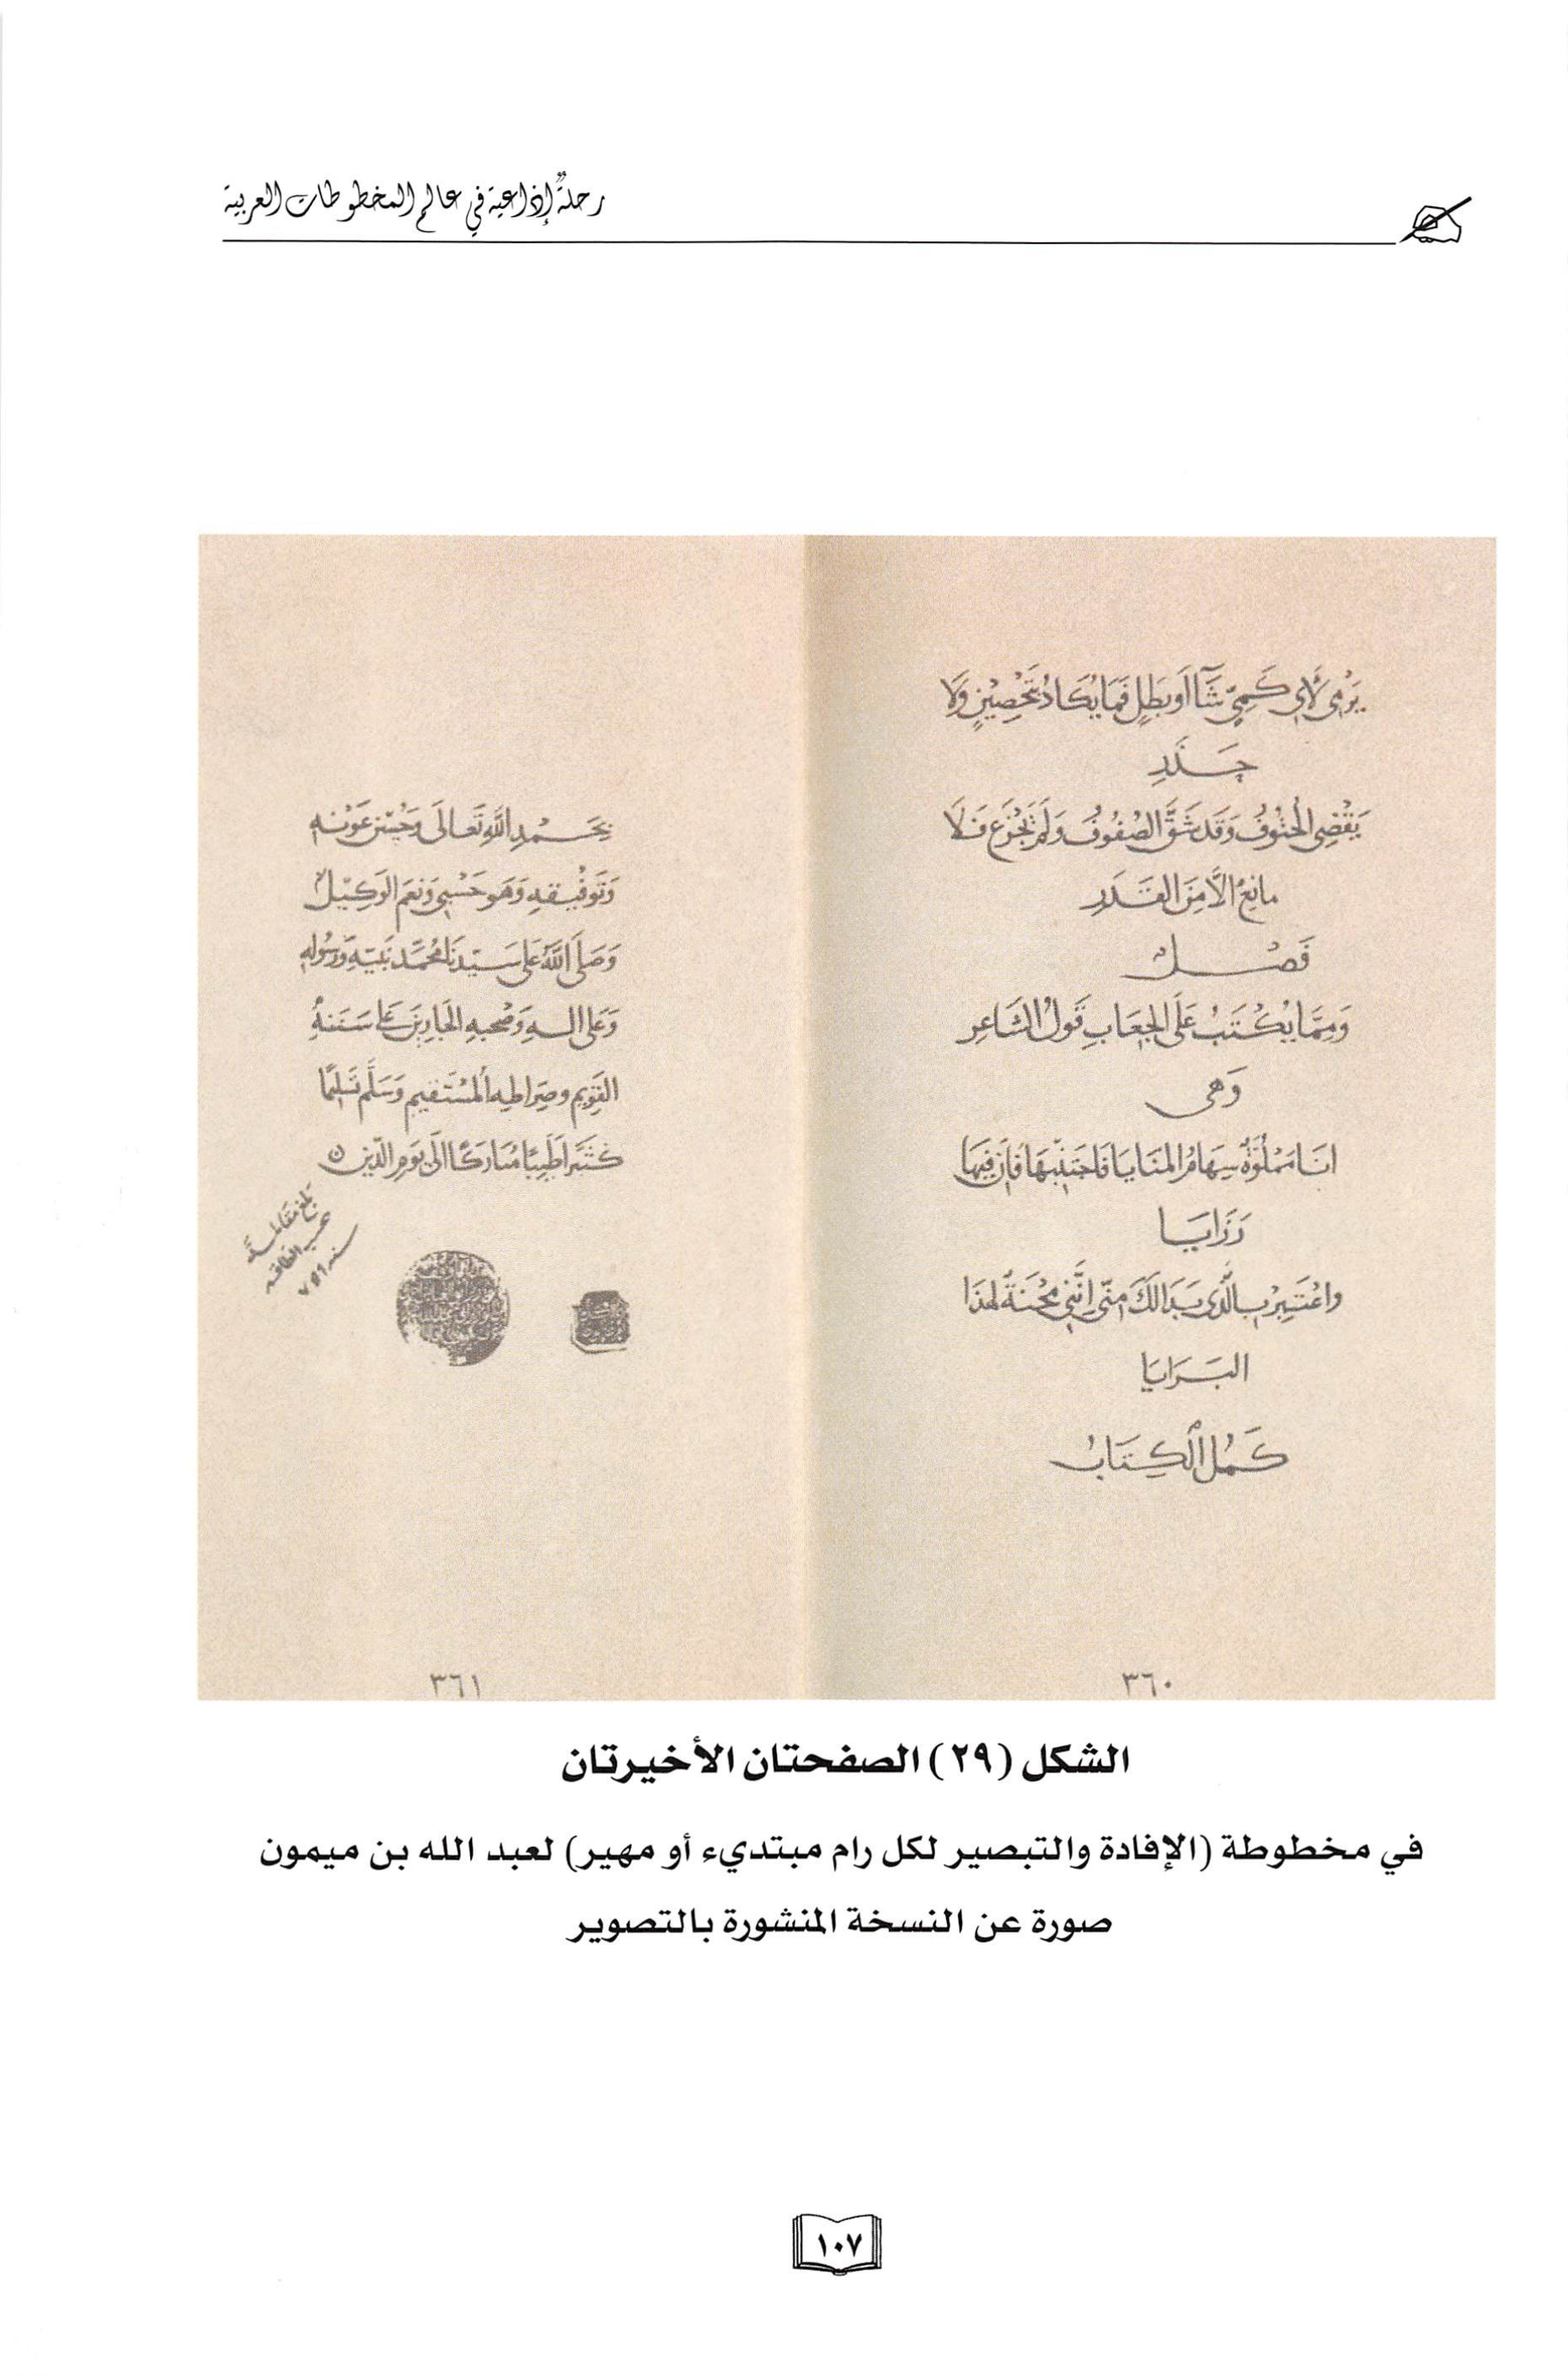 رحلةٌ إذاعية في عالم المخطوطات العربية
يَرْمِي لأي كَمِيٍّ شَآ أو بَطَلٍ فَمَا يَكَادُ بتَحْصِيْنٍ وَلا
حَذَرِ
يَقْضِي الحُتُوْفُ وَقَد شَقَّ الصُفُوفُ وَلَم تَجْزَع فَلَا
مانِعٌ الَّا مِنَ القَدَرِ
فَصْلٌ
وَمِمَّا يُكْتَبُ عَلَى الجِعَابِ قَولُ الشَاعِرِ
وَهي
انَا مَمْلُوَّةٌ سِهَامُ المَنَايَا فَاجتَنِبْهَا فَاِنَّ فِيهَا
رَزَايَا
واعْتَبِرْ بِالَّذِي بَدَا لَكَ مِنّي اِنَّنِي مِحْنَةٌ لهَذَا
البَرَايَا
كَمُلَ الكِتَابُ
٣٦٠
بحَمْدِ اللَّهِ تَعَالَى وَحُسْنِ عَوْنِهِ
وَتَوْفِيْقِهِ وَهو حَسْبِي وَنِعمَ الوَكِيْلُ
وَصَلَى اللَّهُ عَلَى سَيِّدِنَا مُحَمَّد نَبيّهِ وَرَسُولِهِ
وَعَلَى الهِ وَصَحْبِهِ الجَادِينَ عَلَى سَنَنِهِ
القَوِيمِ وصِرَاطِهِ المُسْتَقيمِ وَسَلَّمَ تَسْلِيمًا
كثيرًا طَيِّبًا مُبَارَكًا الَى يَومِ الدِّينِ
بلغ مقابلة
حسب الطاقه
سنه ٧٥٦
٣٦١
الشكل (٢٩) الصفحتان الأخيرتان
في مخطوطة (الإفادة والتبصير لكل رام مبتديء أو مهير) لعبد الله بن ميمون
صورة عن النسخة المنشورة بالتصوير
١٠٧